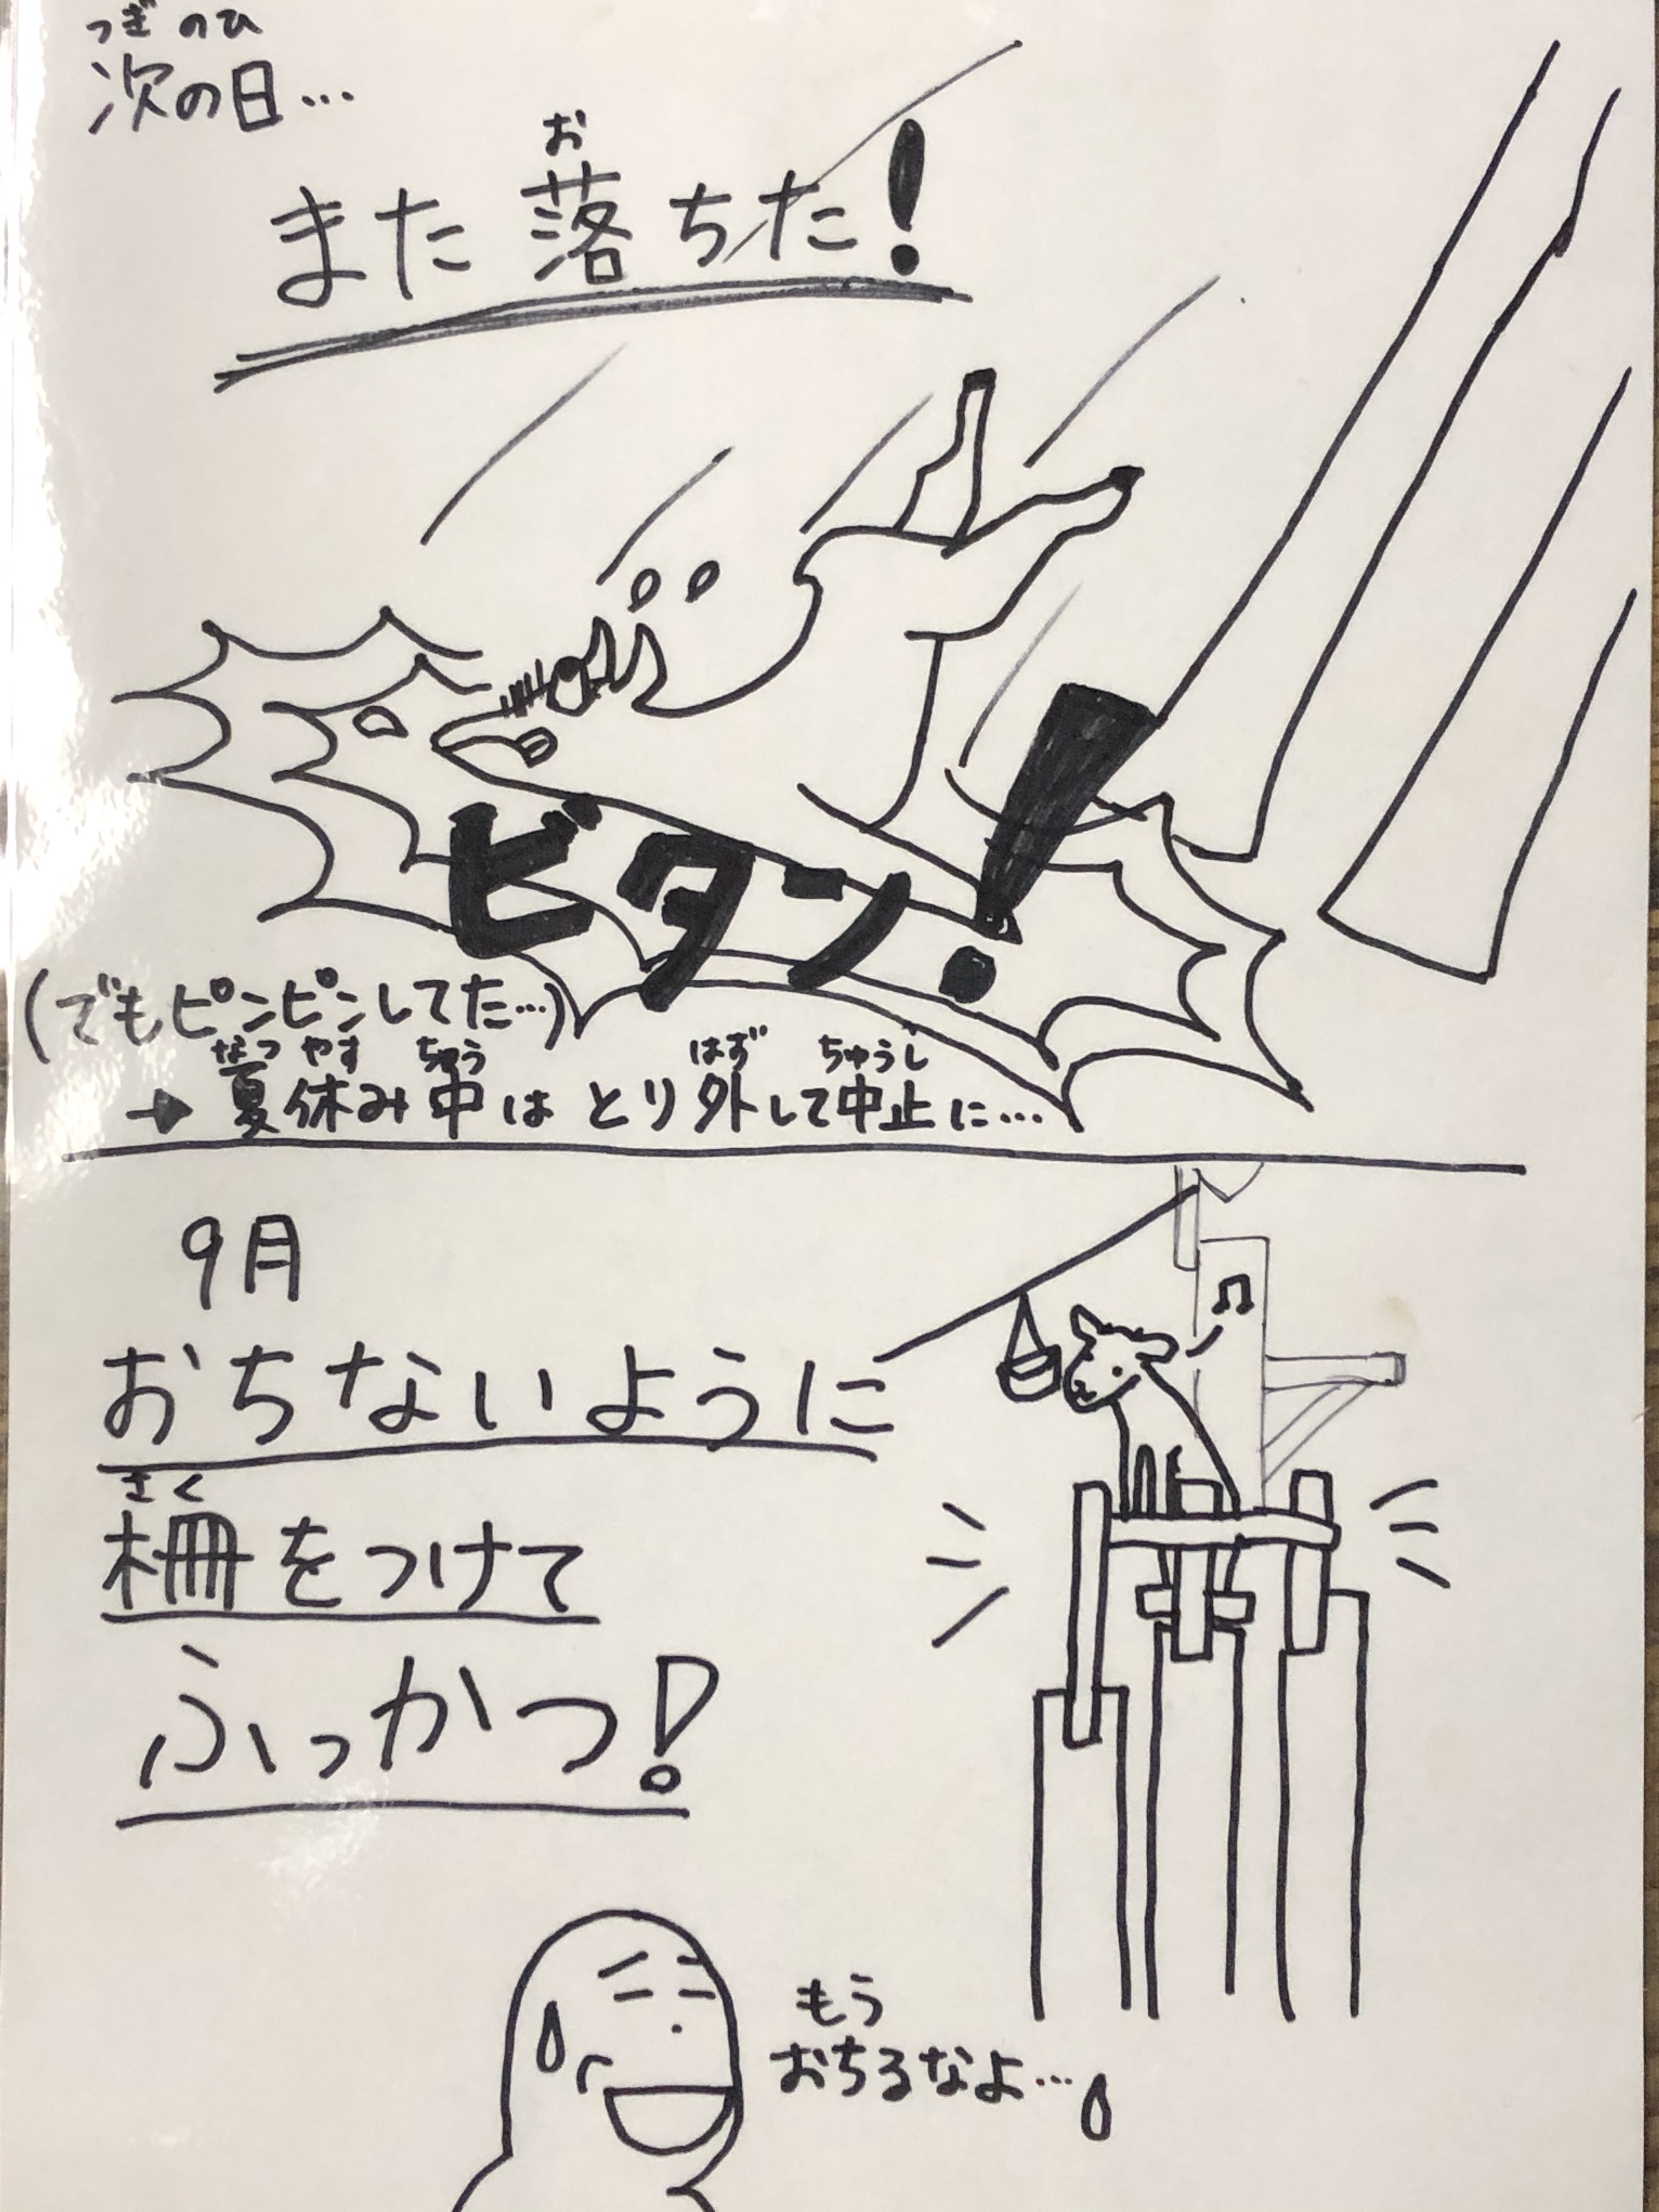 つぎ の ひ
次の日…
お
また落ちた!
ビタン!
(でもピンピンしてた…)
なつ やす ちゅう はず ちゅうし
→夏休み中はとり外して中止に…
9月
おちないように
さく
柵をつけて
ふっかつ!
もう
おちるなよ…